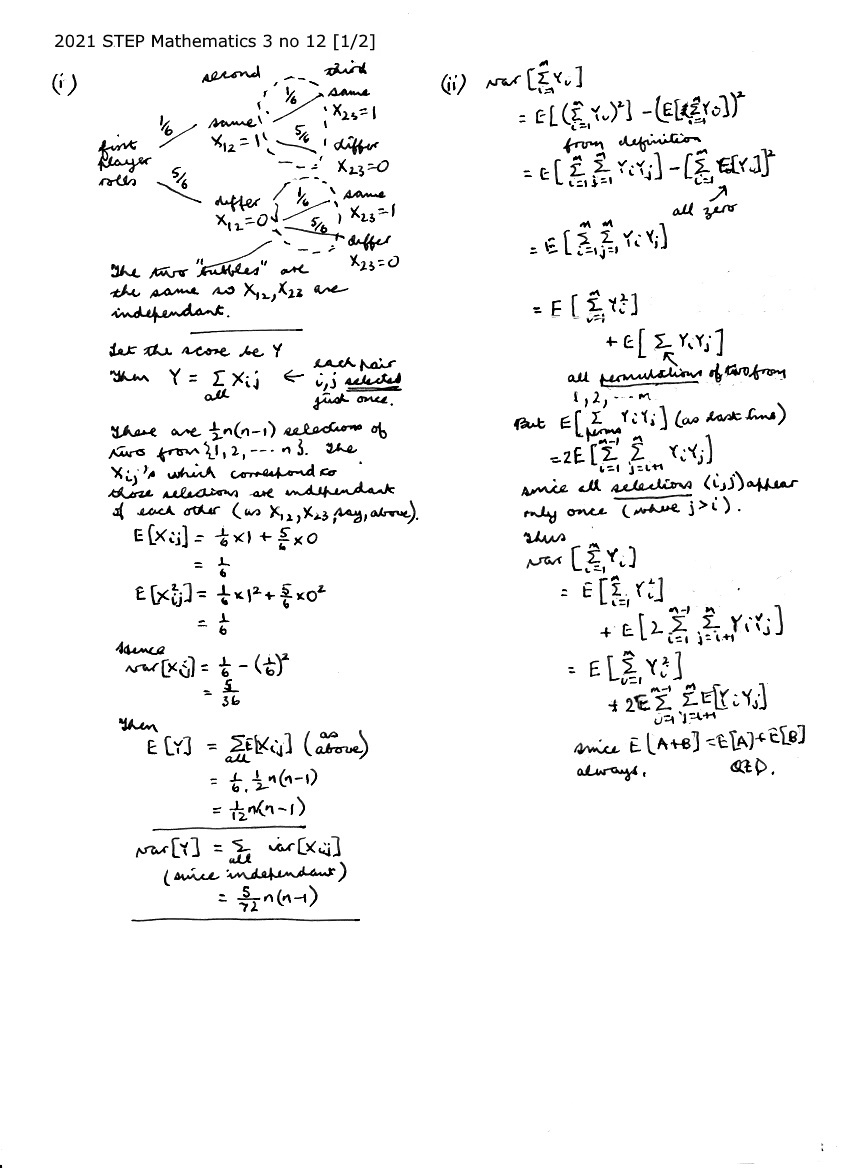 2021 STEP Mathematics 3 no 12 [1/2]
(i)
second third
first player rolls
1/6 same X₁₂=1
5/6 differ X₁₂=0
1/6 same X₂₃=1
5/6 differ X₂₃=0
1/6 same X₂₃=1
5/6 differ X₂₃=0
The two "bubbles" are
the same so X₁₂, X₂₃ are
independant.
Let the score be Y
Then Y = Σ_all Xij ← each pair i,j selected just once.
There are ½n(n-1) selections of
two from {1, 2, ... n}. The
Xij's which correspond to
those selections are independant
of each other (as X₁₂, X₂₃, say, above).
E[Xij] = 1/6 × 1 + 5/6 × 0
= 1/6
E[X²ij] = 1/6 × 1² + 5/6 × 0²
= 1/6
Hence
var[Xij] = 1/6 - (1/6)²
= 5/36
Then
E[Y] = Σ_all E[Xij] (as above)
= 1/6 . 1/2 n(n-1)
= 1/12 n(n-1)
var[Y] = Σ_all var[Xij]
(since independant)
= 5/72 n(n-1)
(ii) var[Σ_{i=1}^m Yi]
= E[(Σ_{i=1}^m Yi)²] - (E[Σ_{i=1}^m Yi])²
from definition
= E[Σ_{i=1}^m Σ_{j=1}^m YiYj] - [Σ_{i=1}^m E[Yi]]²
all zero
= E[Σ_{i=1}^m Σ_{j=1}^m YiYj]
= E[Σ_{i=1}^m Yi²]
+ E[Σ YiYj]
all permutations of two from
1, 2, ... m
But E[Σ_perms YiYj] (as last line)
= 2E[Σ_{i=1}^{m-1} Σ_{j=i+1}^m YiYj]
since all selections (i,j) appear
only once (where j>i).
Thus
var[Σ_{i=1}^m Yi]
= E[Σ_{i=1}^m Yi²]
+ E[2 Σ_{i=1}^{m-1} Σ_{j=i+1}^m YiYj]
= E[Σ_{i=1}^m Yi²]
+ 2 Σ_{i=1}^{m-1} Σ_{j=i+1}^m E[YiYj]
since E[A+B] = E[A]+E[B]
always. QED.